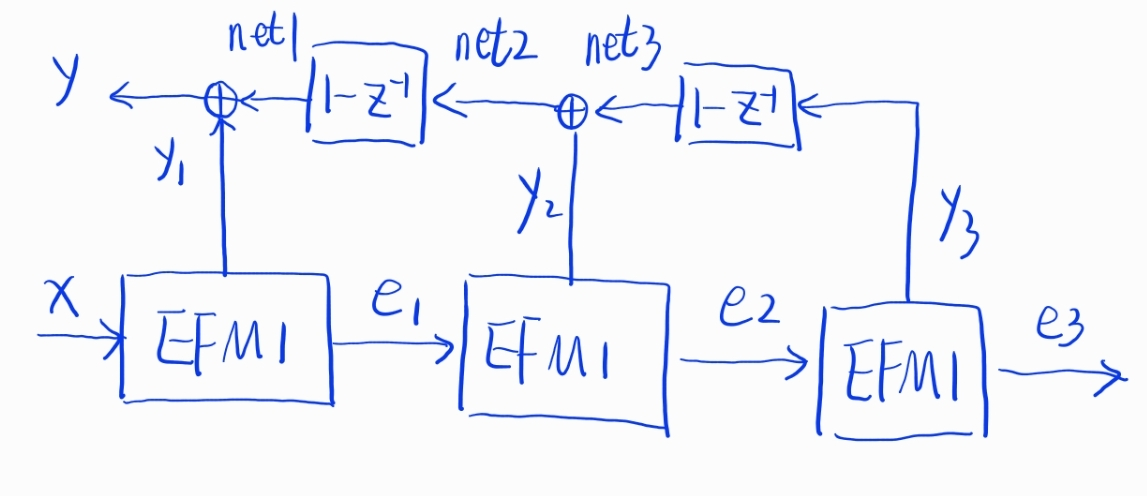 net1
net2
net3
y
1-z⁻¹
1-z⁻¹
y₁
y₂
y₃
x
EFM1
e₁
EFM1
e2
EFM1
e3